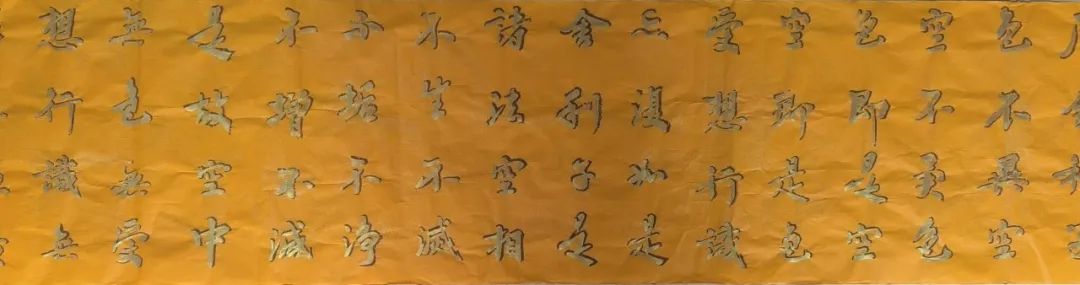 色不異空
空不異色
色即是空
空即是色
受想行識
亦復如是
舍利子是
諸法空相
不生不滅
不垢不淨
不增不減
是故空中
無色無受
想行識無